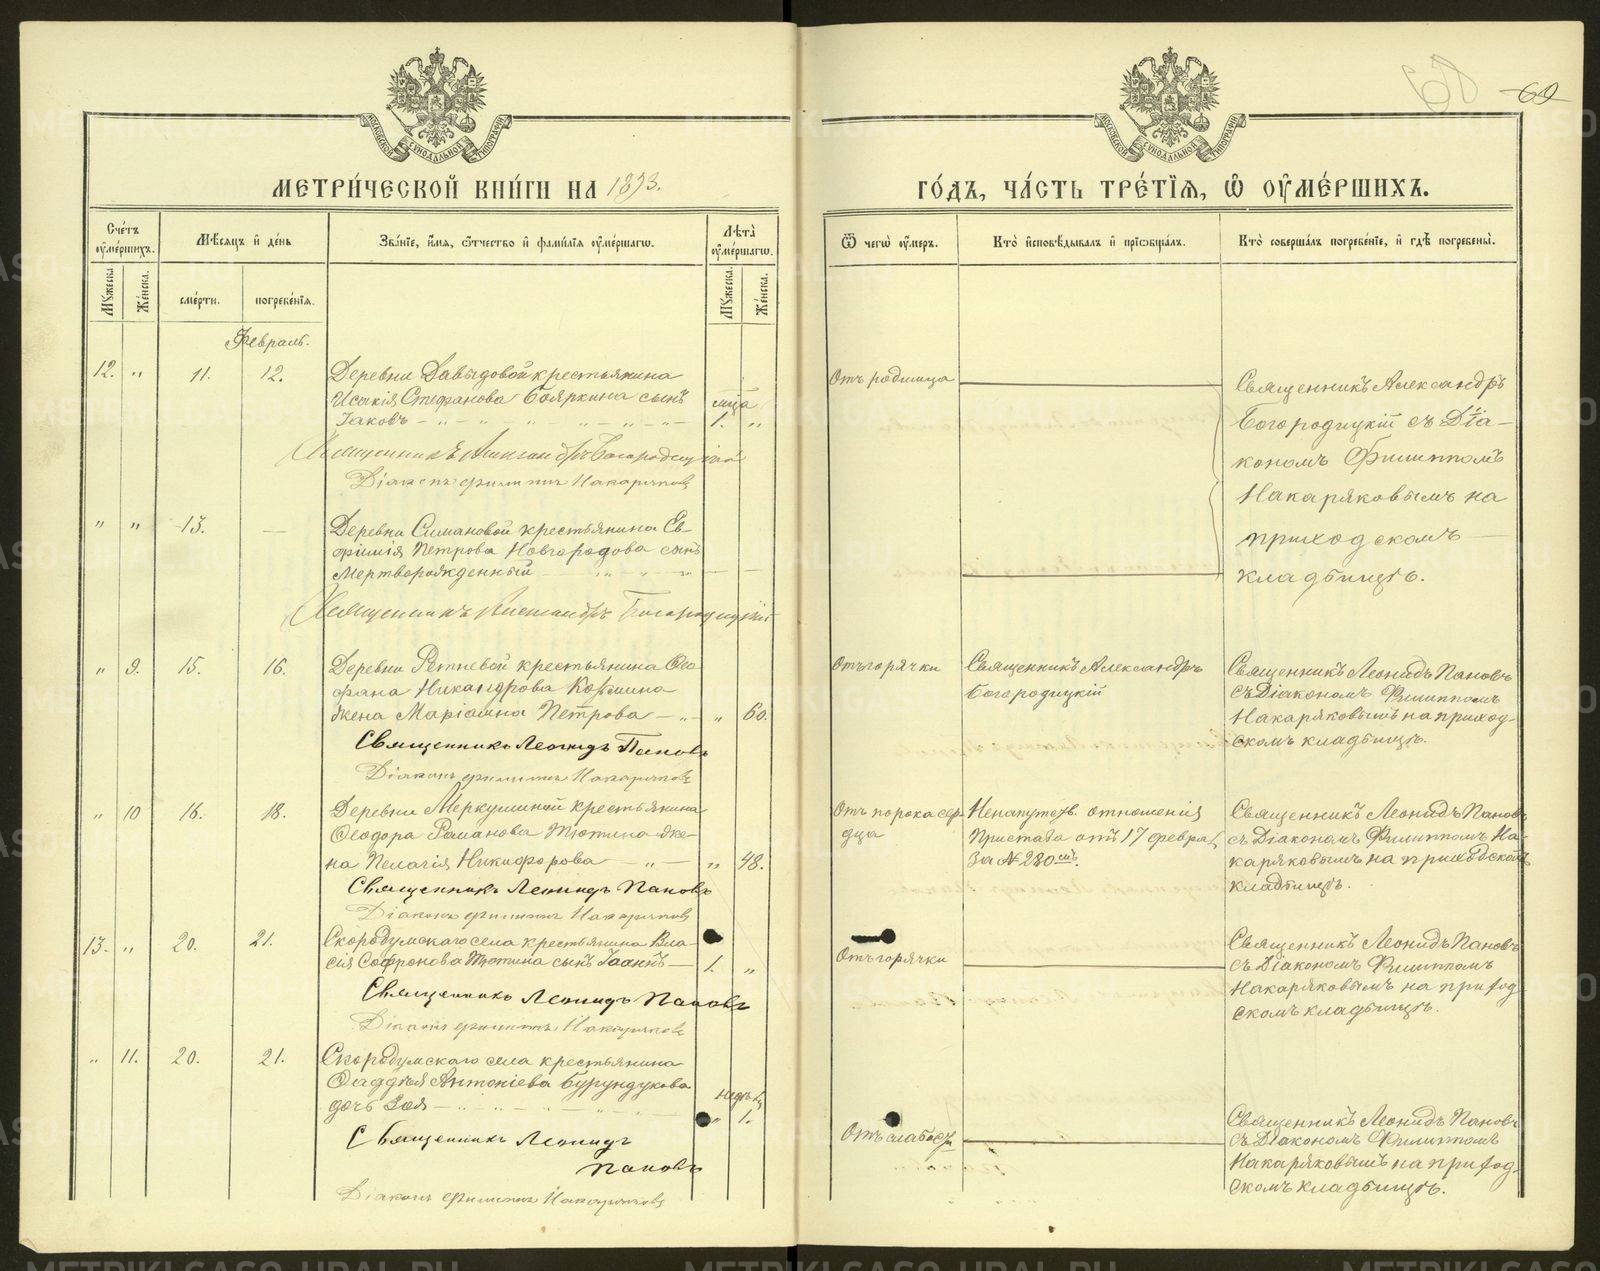 69
МОСКОВСКОЙ СѴНОДАЛЬНОЙ ТИПОГРАФІИ
МОСКОВСКОЙ СѴНОДАЛЬНОЙ ТИПОГРАФІИ
МЕТРИ́ЧЕСКОЙ КНИ́ГИ НА 1893.
ГО́ДЪ, ЧА́СТЬ ТРЕ́ТІѦ, Ѡ ОУМЕ́РШИХЪ.
Сче́тъ оуме́ршихъ.
Мѣ́сяцъ и де́нь
Зва́ніе, и́мя, ѻ́тчество и фами́лія оуме́ршагѡ.
Лѣта̀ оуме́ршагѡ.
Ѿ чегѡ̀ оу́меръ.
Кто̀ исповѣ́дывалъ и пріобща́лъ.
Кто̀ соверша́лъ погребе́ніе, и гдѣ̀ погребены̀.
Мꙋжеска.
Же́нска.
сме́рти.
погребе́нія.
Мꙋжеска.
Же́нска.
Февраль.
12. " 11. 12.
Деревни Давыдовой крестьянина
Исакія Стефанова Бояркина сынъ
Іаковъ
мца
1. "
Священникъ Александръ Богородицкій
Діаконъ Филиппъ Накаряковъ
Отъ родимца
Священникъ Александръ
Богородицкій съ Діа-
кономъ Филиппомъ
Накаряковымъ на
приходскомъ
кладбищѣ.
" " 13. —
Деревни Симановой крестьянина Ев-
фимія Петрова Новгородова сынъ
Мертворожденный
Священникъ Александръ Богородицкій
" 9. 15. 16.
Деревни Рѣтневой крестьянина Ѳео-
фана Никандрова
жена Маріамна Петрова — " 60.
Священникъ Леонидъ Пановъ
Діаконъ Филиппъ Накаряковъ
Отъ горячки
Священникъ Александръ
Богородицкій
Священникъ Леонидъ Пановъ
съ Діакономъ Филиппомъ
Накаряковымъ на приход-
скомъ кладбищѣ.
" 10 16. 18.
Деревни Меркушиной крестьянина
Ѳеодора Романова Тютина же-
на Пелагія Никифорова — " 48.
Священникъ Леонидъ Пановъ
Діаконъ Филиппъ Накаряковъ
Отъ порока сер-
дца
отношенія
Пристава отъ 17 февра
за № 280
Священникъ Леонидъ Пановъ
съ Діакономъ Филиппомъ На-
каряковымъ на приходскомъ
кладбищѣ.
13. " 20. 21.
Скородумскаго села крестьянина Вла-
сія Софронова Тютина сынъ Іоаннъ — 1. "
Священникъ Леонидъ Пановъ
Діаконъ Филиппъ Накаряковъ
Отъ горячки
Священникъ Леонидъ Пановъ
съ Діакономъ Филиппомъ
Накаряковымъ на приход-
скомъ кладбищѣ.
" 11. 20. 21.
Скородумскаго села крестьянина
Ѳаддея Антоніева Бурундукова
дочь Зоя
" 1.
Священникъ Леонидъ
Пановъ
Діаконъ Филиппъ Накаряковъ
Отъ слабости
Священникъ Леонидъ Пановъ
съ Діакономъ Филиппомъ
Накаряковымъ на приход-
скомъ кладбищѣ.
METRIKI.GASO-URAL.RU